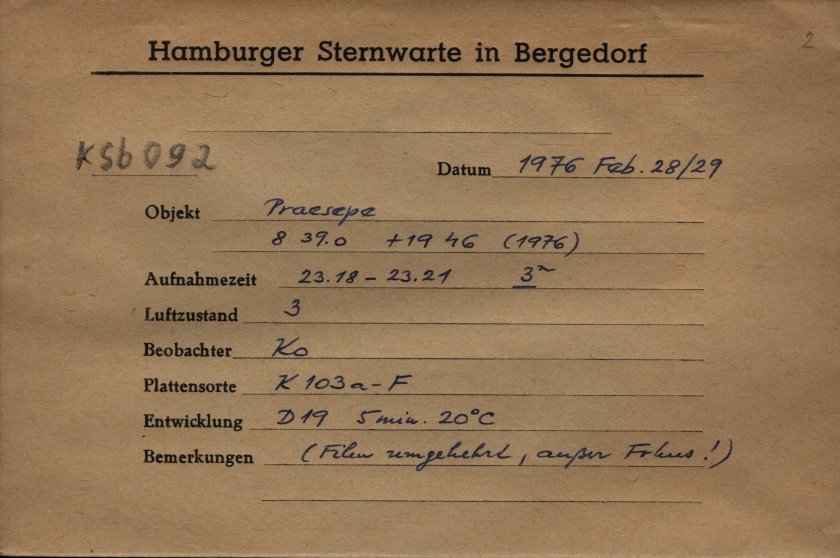 2
Hamburger Sternwarte in Bergedorf
KSb092
Datum 1976 Feb. 28/29
Objekt Praesepe
8 39.0 +19 46 (1976)
Aufnahmezeit 23.18 – 23.21 3ᵐ
Luftzustand 3
Beobachter Ko
Plattensorte K 103a-F
Entwicklung D19 5 min. 20°C
Bemerkungen (Film umgekehrt, außer Fokus!)